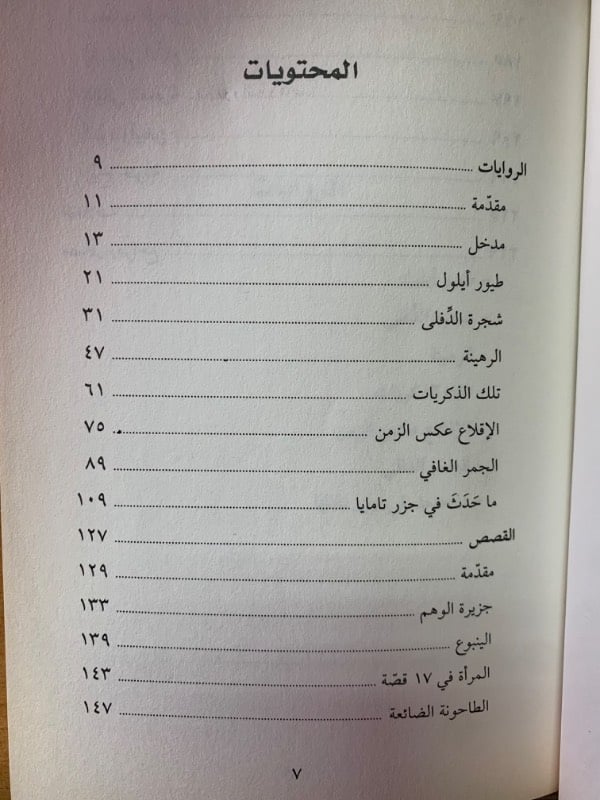 المحتويات
الروايات ........ ٩
مقدّمة ........ ١١
مدخل ........ ١٣
طيور أيلول ........ ٢١
شجرة الدِّفلى ........ ٣١
الرهينة ........ ٤٧
تلك الذكريات ........ ٦١
الإقلاع عكس الزمن ........ ٧٥
الجمر الغافي ........ ٨٩
ما حَدَثَ في جزر تامايا ........ ١٠٩
القصص ........ ١٢٧
مقدّمة ........ ١٢٩
جزيرة الوهم ........ ١٣٣
الينبوع ........ ١٣٩
المرأة في ١٧ قصّة ........ ١٤٣
الطاحونة الضائعة ........ ١٤٧
٧